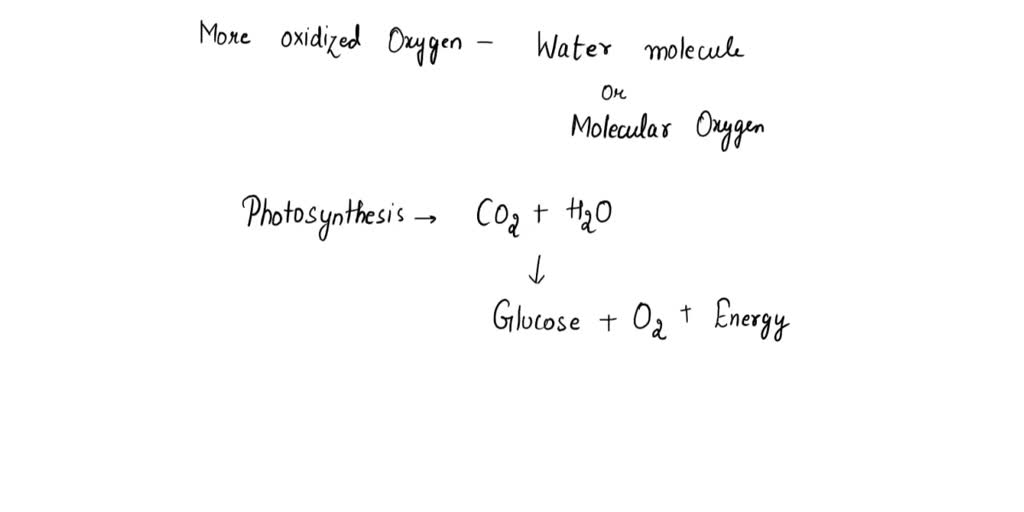 More oxidized Oxygen – Water molecule
or
Molecular Oxygen
Photosynthesis → CO₂ + H₂O
↓
Glucose + O₂ + Energy